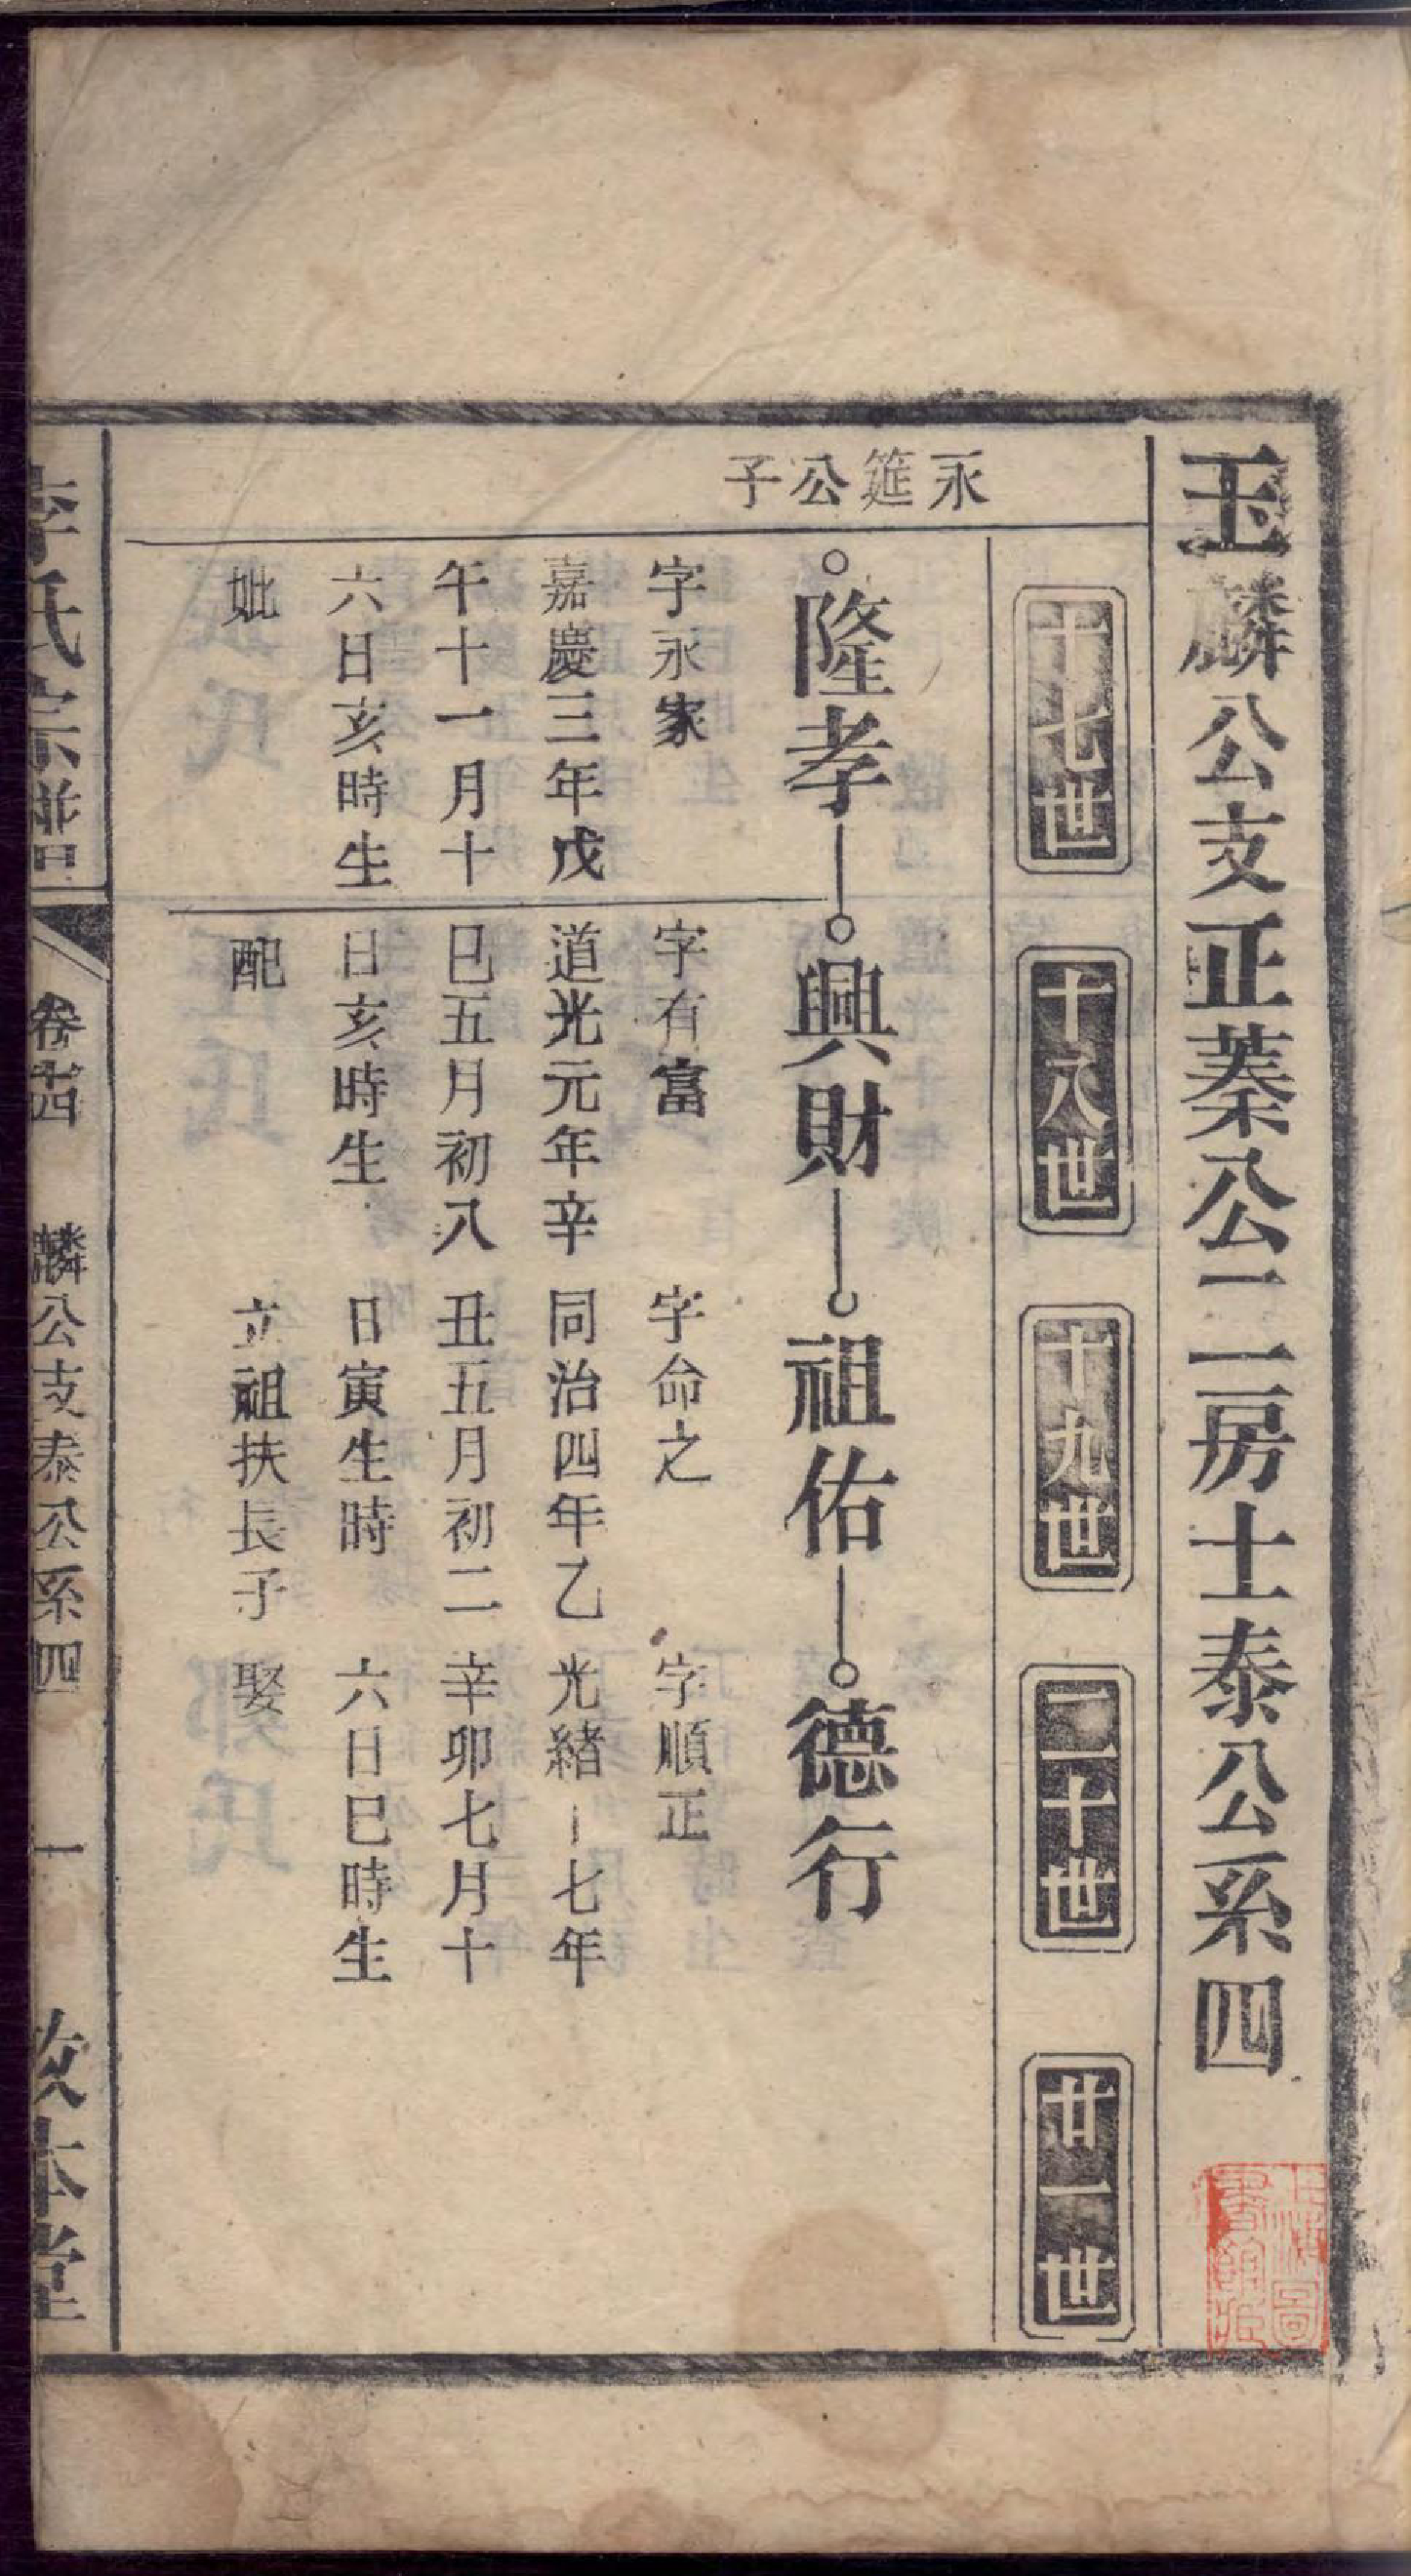 玉麟公支正蓁公二房士泰公系四
十七世
十八世
十九世
二十世
廿一世
永筵公子
隆孝
興財
祖佑
德行
字永家
嘉慶三年戊
午十一月十
六日亥時生
妣
字有富
道光元年辛
巳五月初八
日亥時生
配
字命之
同治四年乙
丑五月初二
日寅生時
立祖扶長子
字順正
光緒十七年
辛卯七月十
六日巳時生
娶
李氏宗譜
卷十四
麟公支泰公系四
一
敦本堂